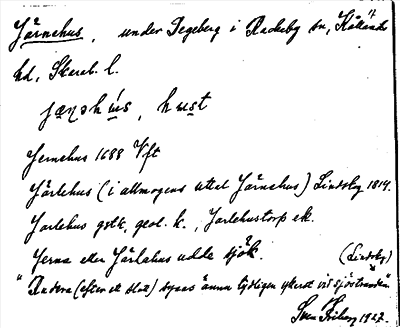 Järnehus, under Degeberg i Rackeby sn, Kållands
hd, Skarab. l.
hust
Jernehus 1688 Vft
Järlehus (i allmogens uttal Järnehus) Lindskog 1814.
Jarlehus gstk, geol. k., Jarlehustorp ek.
Jerna eller Järlahus udde sjök.
(Lindskog)
"Rudera (efter ett slott) synas ännu tydligen ytterst vid sjöstranden"
1927.